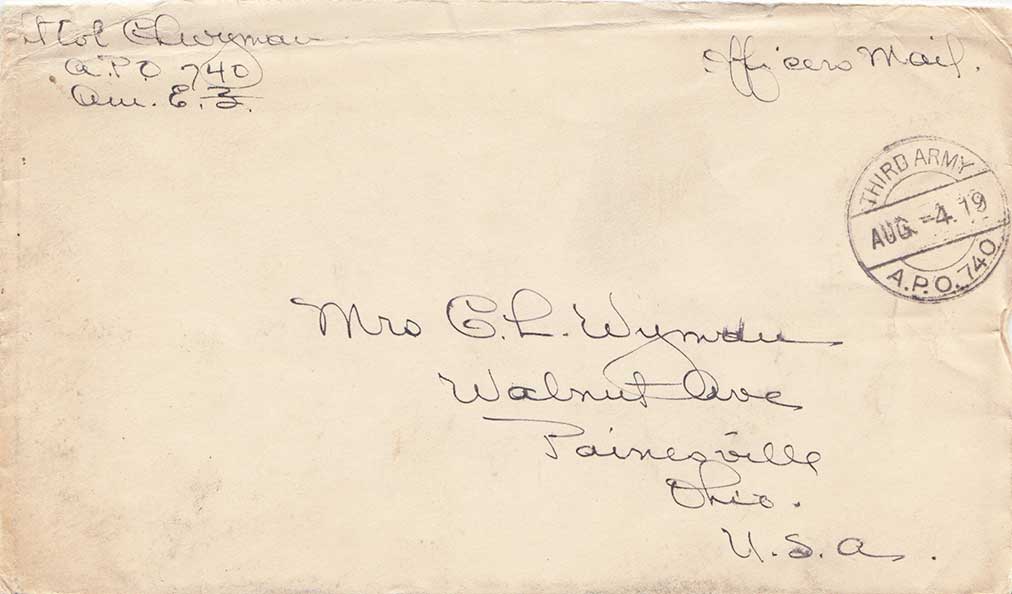 Lt Col CLWyman
A.P.O 740
Am. E. F.
Officers Mail.
THIRD ARMY
AUG -4. 19
A.P.O. 740
Mrs C. L. Wyman
Walnut Ave
Painesville
Ohio.
U.S.A.